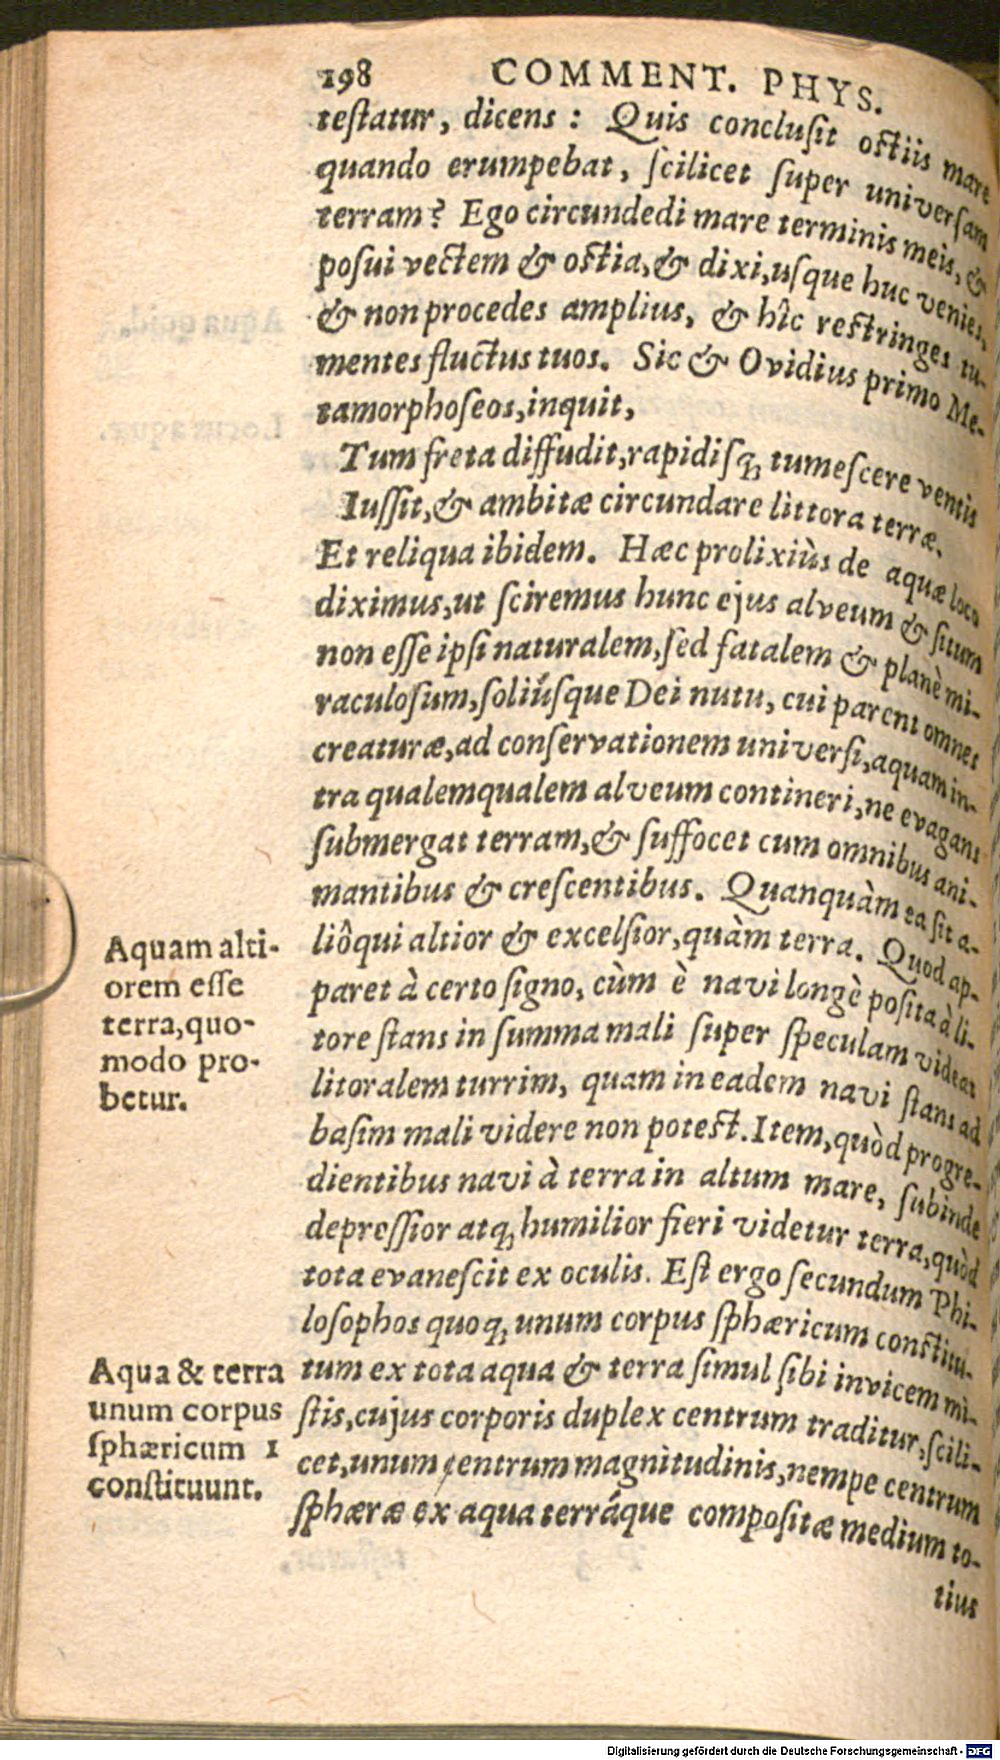 198 COMMENT. PHYS.
testatur, dicens : Quis conclusit ostiis mare
quando erumpebat, scilicet super universam
terram? Ego circundedi mare terminis meis, &
posui vectem & ostia, & dixi, usque huc venies,
& non procedes amplius, & hîc restringes tu-
mentes fluctus tuos. Sic & Ovidius primo Me-
tamorphoseos, inquit,
Tum freta diffudit, rapidisq; tumescere ventis
Iussit, & ambitæ circundare littora terræ.
Et reliqua ibidem. Hæc prolixiùs de aquæ loco
diximus, ut sciremus hunc ejus alveum & situm
non esse ipsi naturalem, sed fatalem & planè mi-
raculosum, soliúsque Dei nutu, cui parent omnes
creaturæ, ad conservationem universi, aquam in-
tra qualemqualem alveum contineri, ne evagans
submergat terram, & suffocet cum omnibus ani-
mantibus & crescentibus. Quanquàm ea sit a-
liôqui altior & excelsior, quàm terra. Quod ap-
paret à certo signo, cùm è navi longè posita à li-
tore stans in summa mali super speculam videat
litoralem turrim, quam in eadem navi stans ad
basim mali videre non potest. Item, quòd progre-
dientibus navi à terra in altum mare, subinde
depressior atq; humilior fieri videtur terra, quòd
tota evanescit ex oculis. Est ergo secundum Phi-
losophos quoq; unum corpus sphæricum constitu-
tum ex tota aqua & terra simul sibi invicem mi-
stis, cujus corporis duplex centrum traditur, scili-
cet, unum centrum magnitudinis, nempe centrum
sphæræ ex aqua terráque compositæ medium to-
tius
Aquam alti-
orem esse
terra, quo-
modo pro-
betur.
Aqua & terra
unum corpus
sphæricum 1
constituunt.
Digitalisierung gefördert durch die Deutsche Forschungsgemeinschaft - DFG